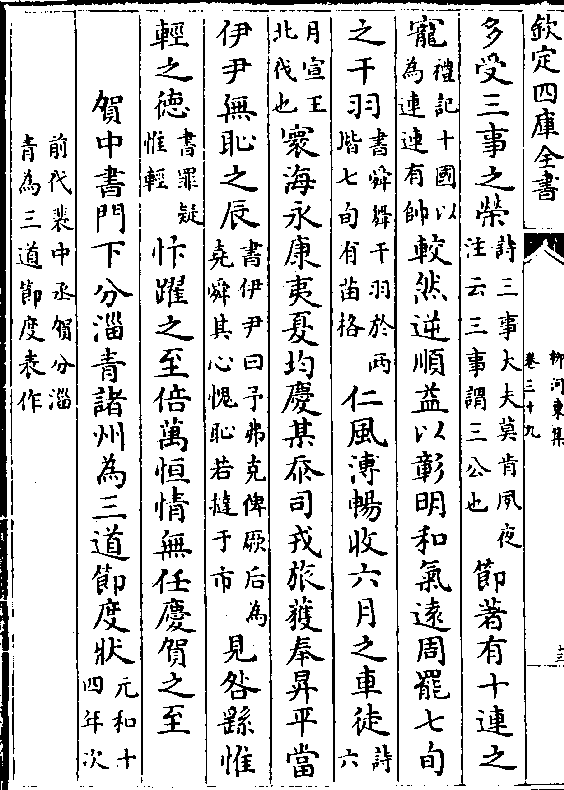 欽定四庫全書
柳河東集
卷三十九
十三
多受三事之榮詩三事大夫莫肯夙夜注云三事謂三公也節著有十連之
寵禮記十國以為連連有帥較然逆順益以彰明和氣遠周罷七旬
之干羽書舜舞干羽於兩階七旬有苗格仁風溥暢收六月之車徒詩六
月宣王北伐也寰海永康夷夏均慶某忝司戎旅獲奉昇平當
伊尹無恥之辰書伊尹曰予弗克俾厥后為堯舜其心愧恥若撻于市見咎繇惟
輕之德書罪疑惟輕忭躍之至倍萬恒情無任慶賀之至
賀中書門下分淄青諸州為三道節度狀元和十四年次
前代裴中丞賀分淄青為三道節度表作